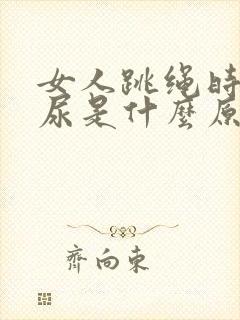 女人跳绳时
尿是什麼原
齊向東